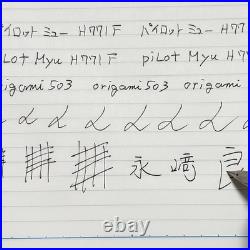 パイロット ミュー H771F パイロット ミュー H771F
piLot Myu H771F piLot Myu H
origami503 origami503 origami
永 﨑 良